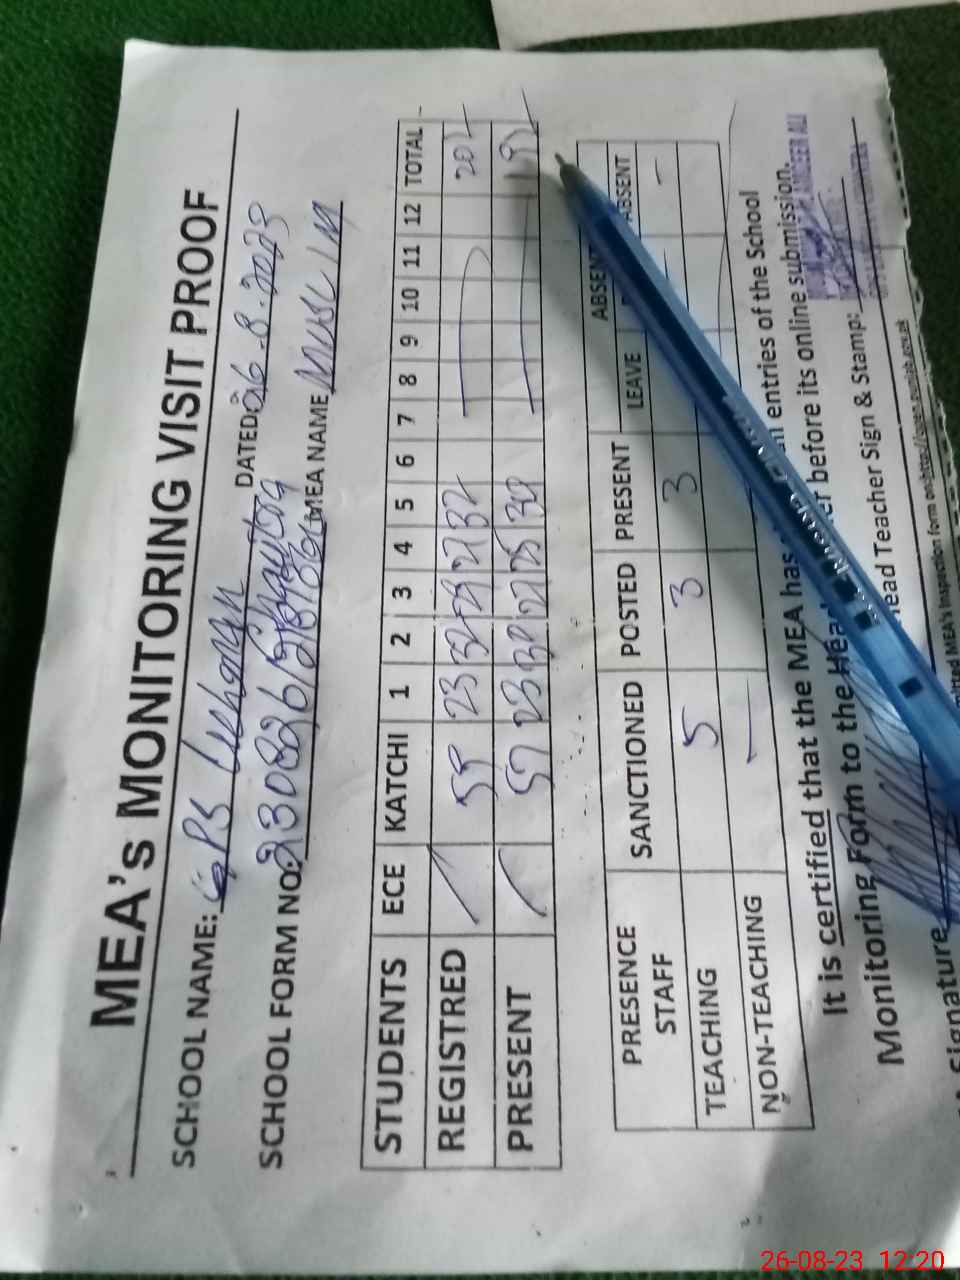 MEA's MONITORING VISIT PROOF
SCHOOL NAME: GPS DATED 26.8.2023
SCHOOL FORM NO: MEA NAME MUSLIM
STUDENTS ECE KATCHI 1 2 3 4 5 6 7 8 9 10 11 12 TOTAL
REGISTRED 59 23 32 29 27 32 202
PRESENT 57 23 30 27 25 30
PRESENCE STAFF SANCTIONED POSTED PRESENT LEAVE ABSENT
TEACHING 5 3 3 -
NON-TEACHING —
It is certified that the MEA has entries of the School
Monitoring Form to the before its online submission.
Signature Head Teacher Sign & Stamp:
MEA's Inspection form on
26-08-23 12:20